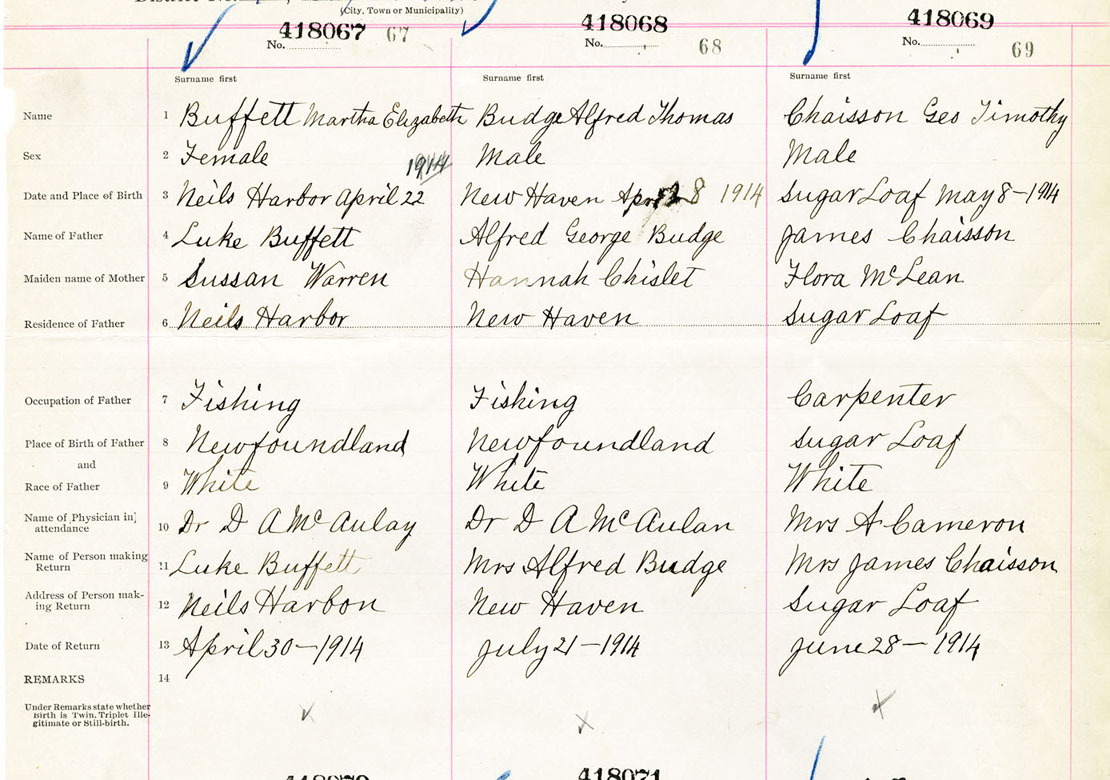 District No.
(City, Town or Municipality)
418067 67 418068 418069
No. No. 68 No. 69
Surname first Surname first Surname first
Name 1 Buffett Martha Elizabeth Budge Alfred Thomas Chaisson Geo Timothy
Sex 2 Female 1914 Male Male
Date and Place of Birth 3 Neils Harbor April 22 New Haven April 28 1914 Sugar Loaf May 8-1914
Name of Father 4 Luke Buffett Alfred George Budge James Chaisson
Maiden name of Mother 5 Sussan Warren Hannah Chislet Flora McLean
Residence of Father 6 Neils Harbor New Haven Sugar Loaf
Occupation of Father 7 Fishing Fishing Carpenter
Place of Birth of Father 8 Newfoundland Newfoundland Sugar Loaf
and
Race of Father 9 White White White
Name of Physician in attendance 10 Dr D A McAulay Dr D A McAulan Mrs A Cameron
Name of Person making Return 11 Luke Buffett Mrs Alfred Budge Mrs James Chaisson
Address of Person mak-ing Return 12 Neils Harbon New Haven Sugar Loaf
Date of Return 13 April 30-1914 July 21-1914 June 28-1914
REMARKS 14
Under Remarks state whether
Birth is Twin, Triplet Ille-
gitimate or Still-birth.
418071